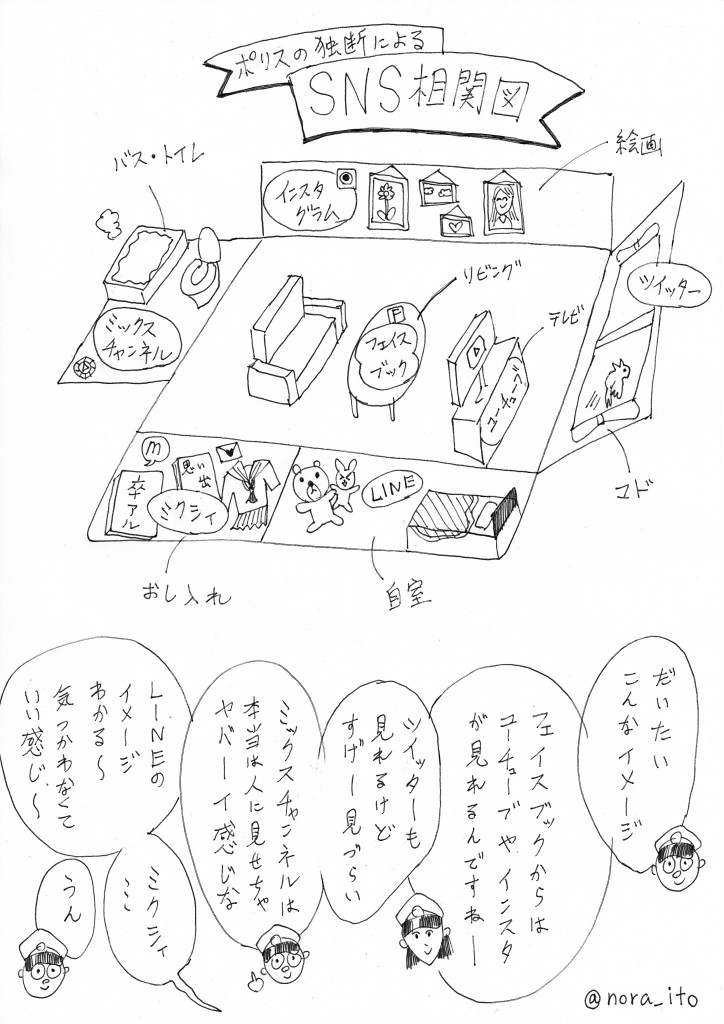 ポリスの独断による
SNS相関図
絵画
バス・トイレ
インスタ
グラム
ツイッター
リビング
テレビ
ミックス
チャンネル
F
フェイス
ブック
ユーチューブ
マド
m
思い出
卒アル
ミクシィ
LINE
おし入れ
自室
だいたい
こんなイメージ
フェイスブックからは
ユーチューブやインスタ
が見れるんですねー
ツイッターも
見れるけど
すげー見づらい
ミックスチャンネルは
本当は人に見せちゃ
ヤバーイ感じな
LINEの
イメージ
わかる〜
気つかわなくて
いい感じ〜
ミクシィ
…
うん
@nora_ito